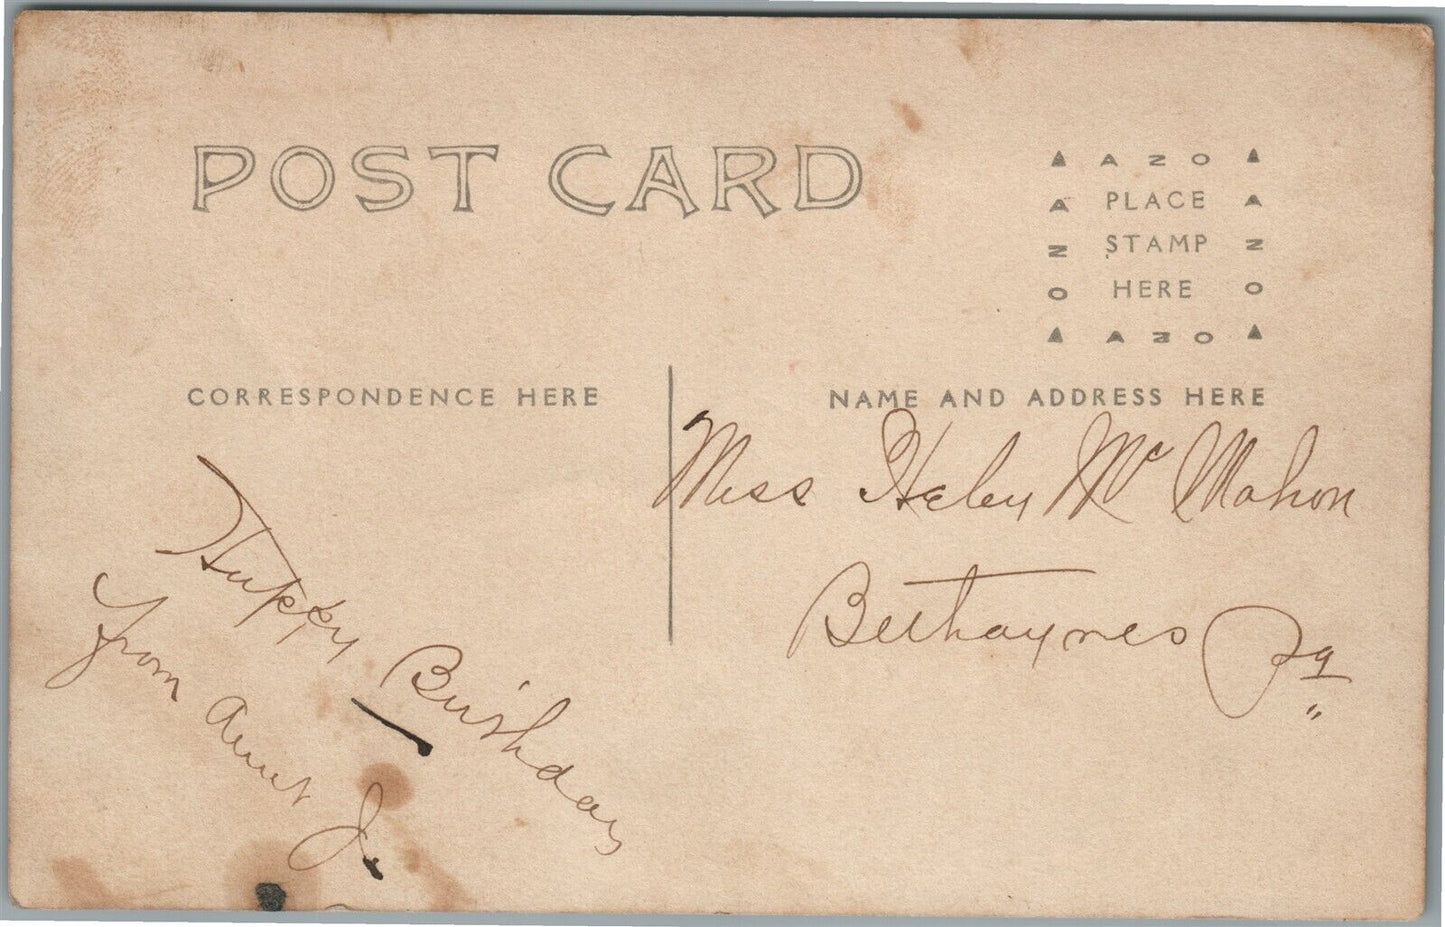 POST CARD
AZO
PLACE
STAMP
HERE
AZO
AZO
AZO
CORRESPONDENCE HERE
NAME AND ADDRESS HERE
Miss Helen Mc Mahon
Bethayres Pa
Happy Birthday
from Aunt J.